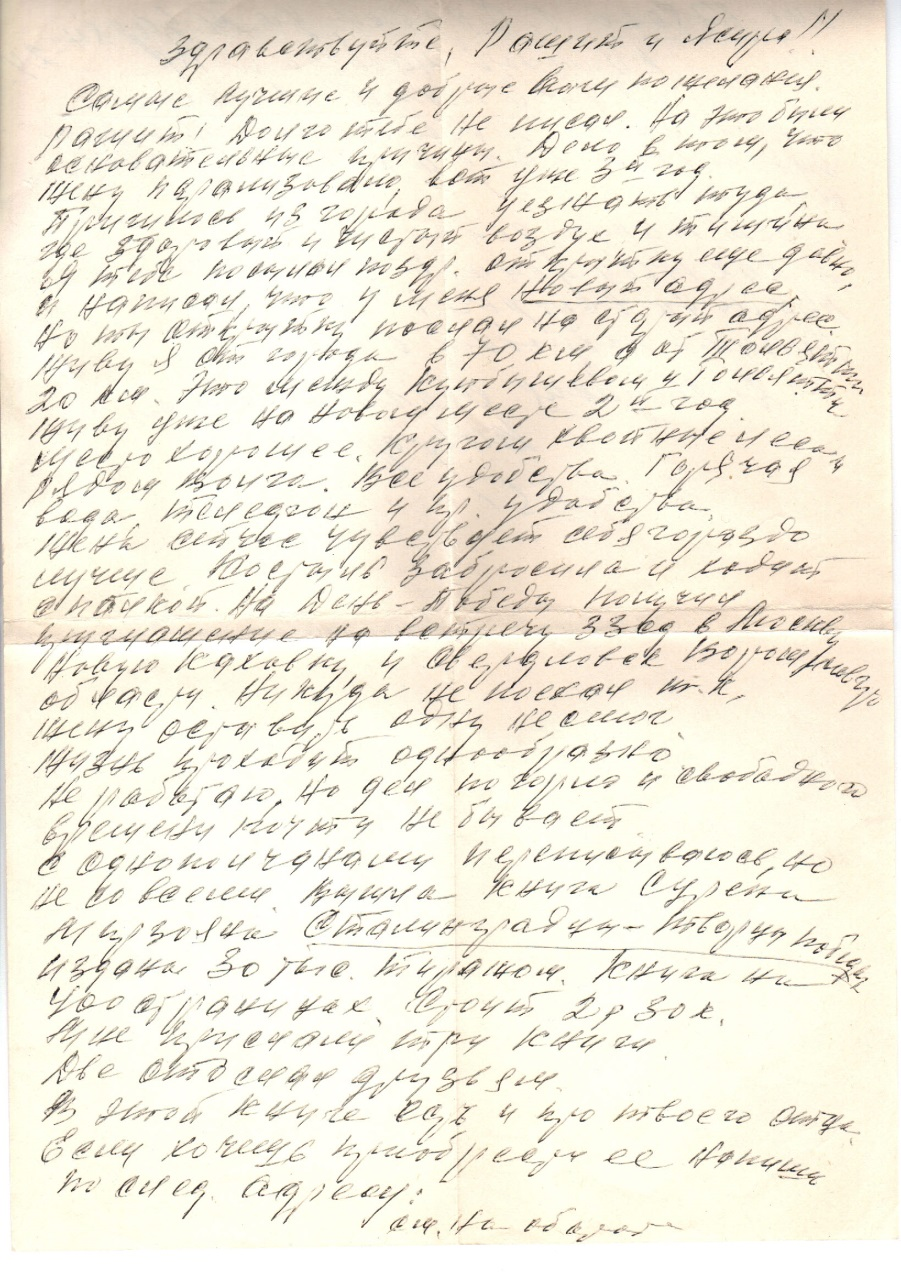 Здравствуйте, Рашит и Ясира!!
Самые лучшие и добрые Вам пожелания.
Рашит! Долго тебе не писал. На это были
основательные причины. Дело в том, что
жену парализовало, вот уже 3й год.
Пришлось из города уезжать туда
где здоровый и чистый воздух и тишина
Я тебе посылал поздр. открытку еще давно,
и написал, что у меня новый адрес,
Но ты открытку послал на старый адрес.
Живу я от города в 70 км а от Тольятти
20 км. Это между Куйбышевом и Тольятти
живу уже на новом месте 2й год.
Место хорошее. Кругом хвойные леса и
рядом Волга. Все удобства. Горячая
вода телефон и пр. удобства
Жена сейчас чувствует себя гораздо
лучше. Костыль забросила и ходит
с палкой. На День-Победы получил
приглашение на встречу 33сд в Москву
Новую Каховку и Свердловск Ворошиловгр.
область. Никуда не поехал т.к,
жену оставить одну не смог
Жизнь проходит однообразно
Не работаю, но дел по горло и свободного
времени почти не бывает
С однополчанами переписываюсь, но
не со всеми. Вышла книга Сурена
Мирзояна Сталинградцы-творцы победы
издана 30 тыс. тиражом. Книга на
400 страницах. Стоит 2р 30к.
Мне прислали три книги.
Две отослал друзьям.
В этой книге есть и про твоего отца.
Если хочешь приобрести ее напиши
по след. адресу:
см. на обороте